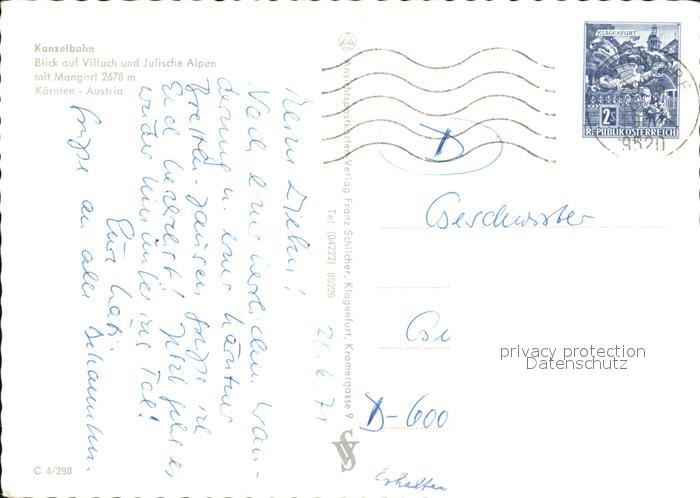 Kanzelbahn
Blick auf Villach und Julische Alpen
mit Mangert 2678 m
Kärnten - Austria
Meine Lieben!
24. 6. 71
Nach einer herrlichen Wan-
derung u. einer Kärntner
Brettl-Jausen grüße ich
Euch herzlichst! Jetzt geht es
wieder hinunter ins Tal!
Eure
Grüße an alle Bekannten.
Ansichtspostkarten-Verlag Franz Schilcher, Klagenfurt, Kramergasse 9
Tel. (04222) 85228
KLAGENFURT
2S
REPUBLIK ÖSTERREICH
9520
D
Geschwister
privacy protection
Datenschutz
D-600
Erhalten
C 4/298